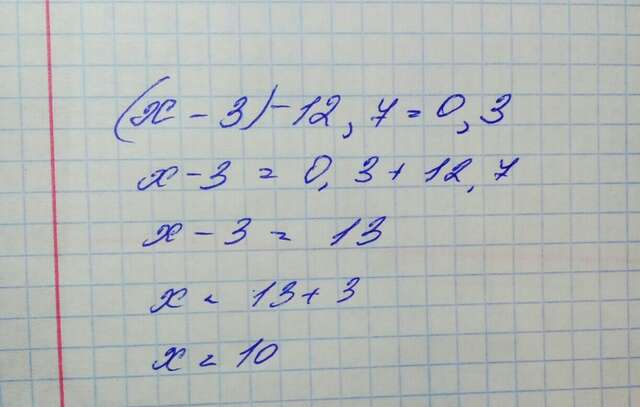 (x - 3) - 12,7 = 0,3
x - 3 = 0,3 + 12,7
x - 3 = 13
x = 13 + 3
x = 10